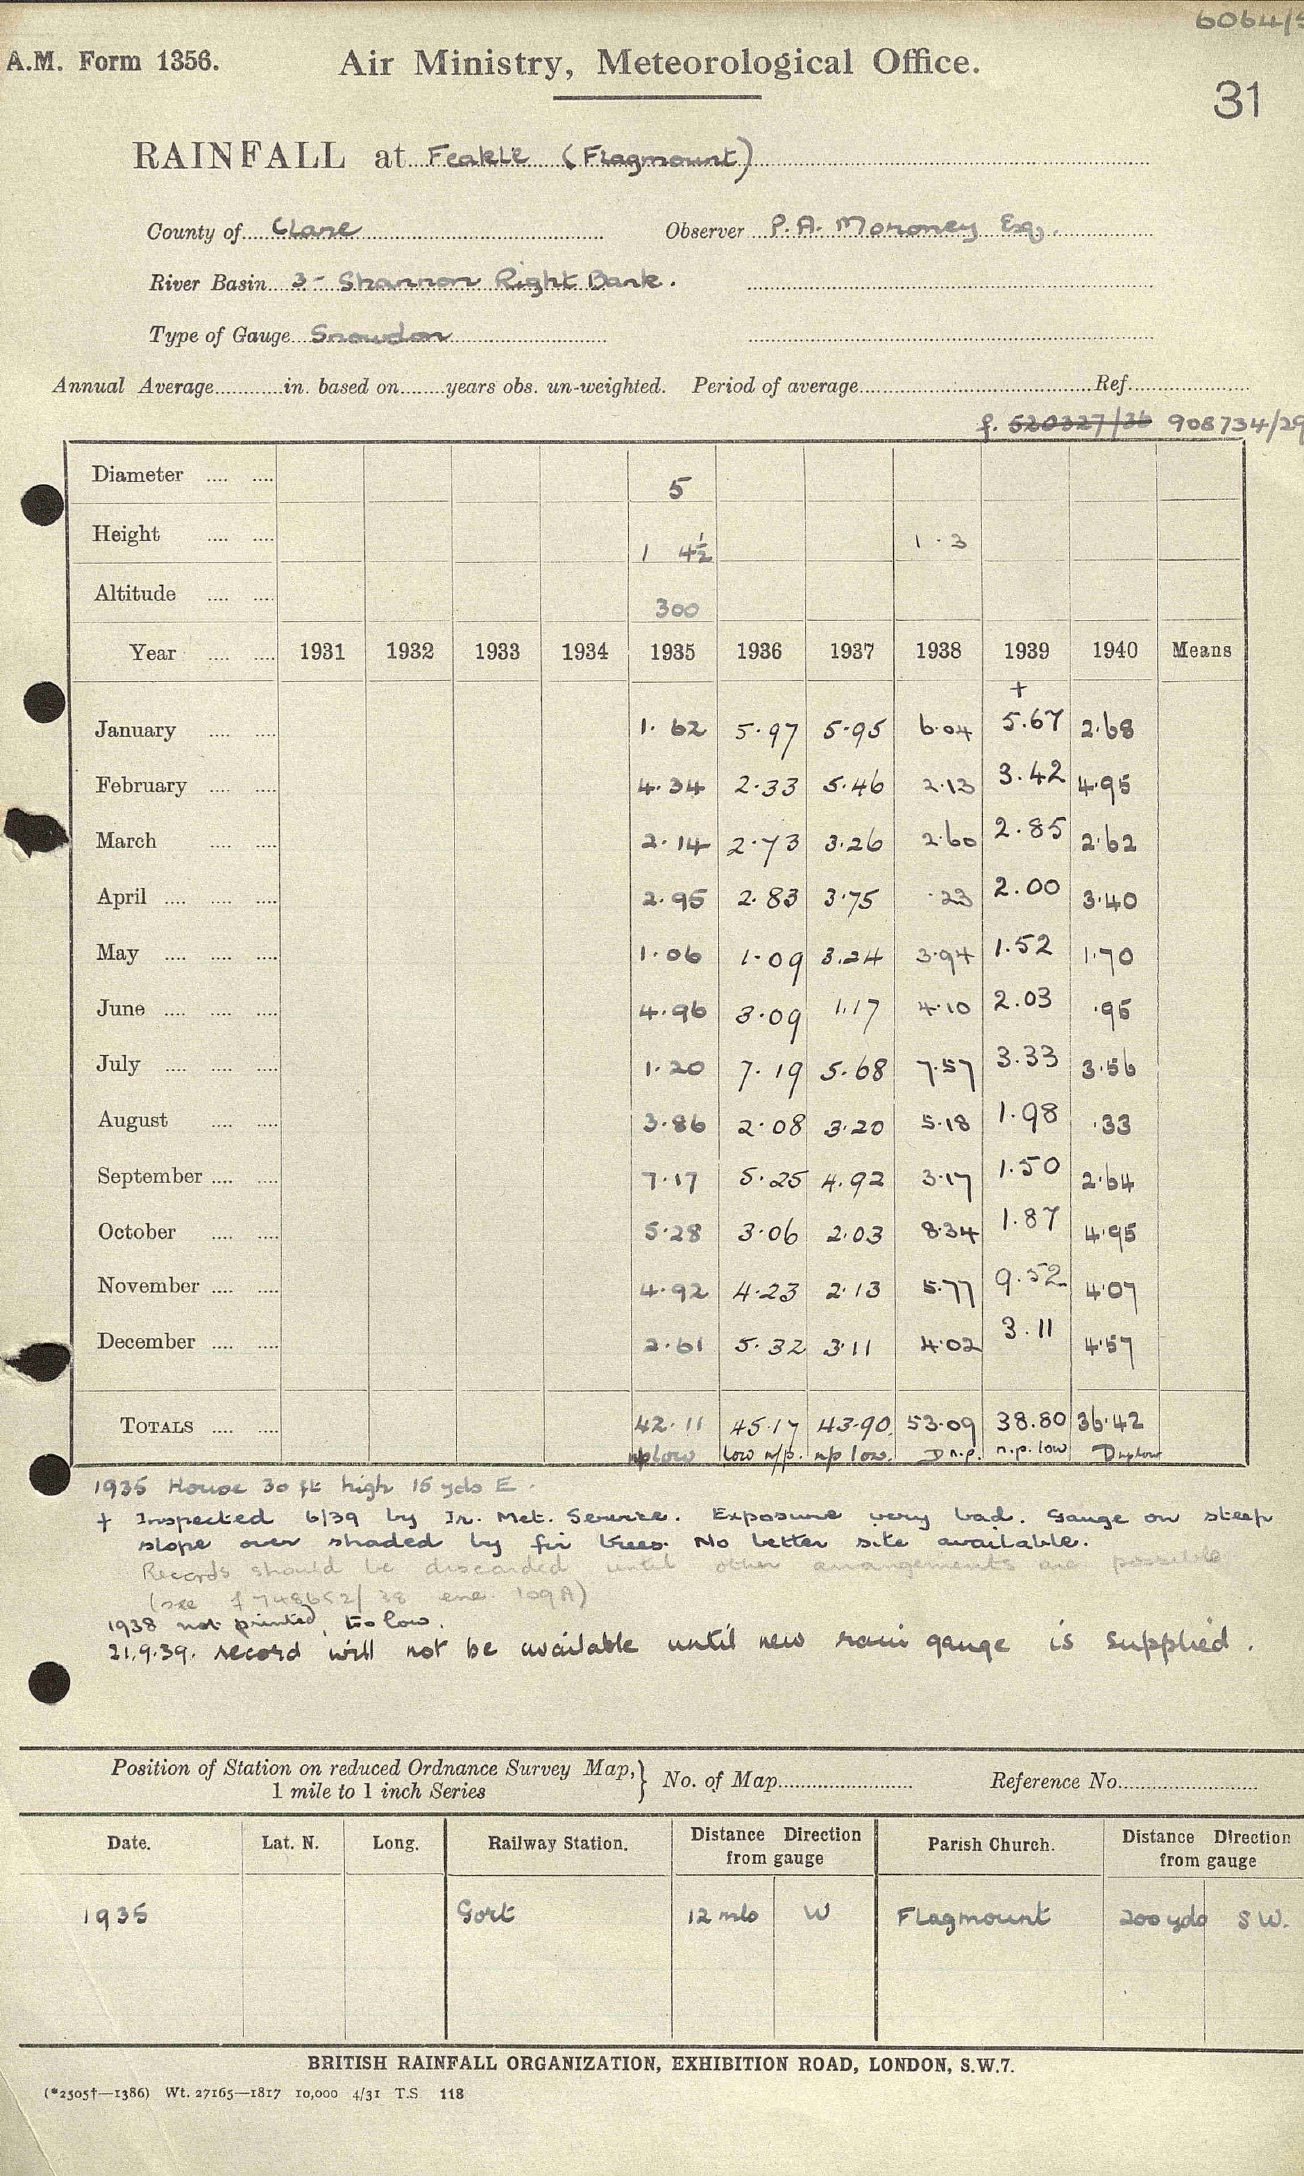 6064/5
A.M. Form 1356. Air Ministry, Meteorological Office.
31
RAINFALL at Feakle (Flagmount)
County of Clare Observer P.A. Moroney Esq.
River Basin 3 - Shannon Right Bank.
Type of Gauge Snowdon
Annual Average in. based on years obs. un-weighted. Period of average Ref.
f. 520327/36 908734/29
Diameter 5
Height 1 4½ 1.3
Altitude 300
Year 1931 1932 1933 1934 1935 1936 1937 1938 1939 1940 Means
+
January 1.62 5.97 5.95 6.04 5.67 2.68
February 4.34 2.33 5.46 2.13 3.42 4.95
March 2.14 2.73 3.26 2.60 2.85 2.62
April 2.95 2.83 3.75 .23 2.00 3.40
May 1.06 1.09 3.24 3.94 1.52 1.70
June 4.96 3.09 1.17 4.10 2.03 .95
July 1.20 7.19 5.68 7.57 3.33 3.56
August 3.86 2.08 3.20 5.18 1.98 .33
September 7.17 5.25 4.92 3.17 1.50 2.64
October 5.28 3.06 2.03 8.34 1.87 4.95
November 4.92 4.23 2.13 5.77 9.52 4.07
December 2.61 5.32 3.11 4.02 3.11 4.57
TOTALS 42.11 45.17 43.90 53.09 38.80 36.42
np low low n/p. np low. D n.p. n.p. low D np low
1935 House 30 ft high 15 yds E.
+ Inspected 6/39 by Ir. Met. Service. Exposure very bad. Gauge on steep
slope over shaded by fir trees. No better site available.
Records should be discarded until other arrangements are possible
(see f 748652/38 enc. 109A)
1938 not printed, too low.
21.9.39. record will not be available until new rain gauge is supplied.
Position of Station on reduced Ordnance Survey Map, } No. of Map Reference No.
1 mile to 1 inch Series
Date. Lat. N. Long. Railway Station. Distance Direction from gauge Parish Church. Distance Direction from gauge
1935 Gort 12 mls W Flagmount 200 yds S W.
BRITISH RAINFALL ORGANIZATION, EXHIBITION ROAD, LONDON, S.W.7.
(*2505†—1386) Wt. 27165—1817 10,000 4/31 T.S. 118